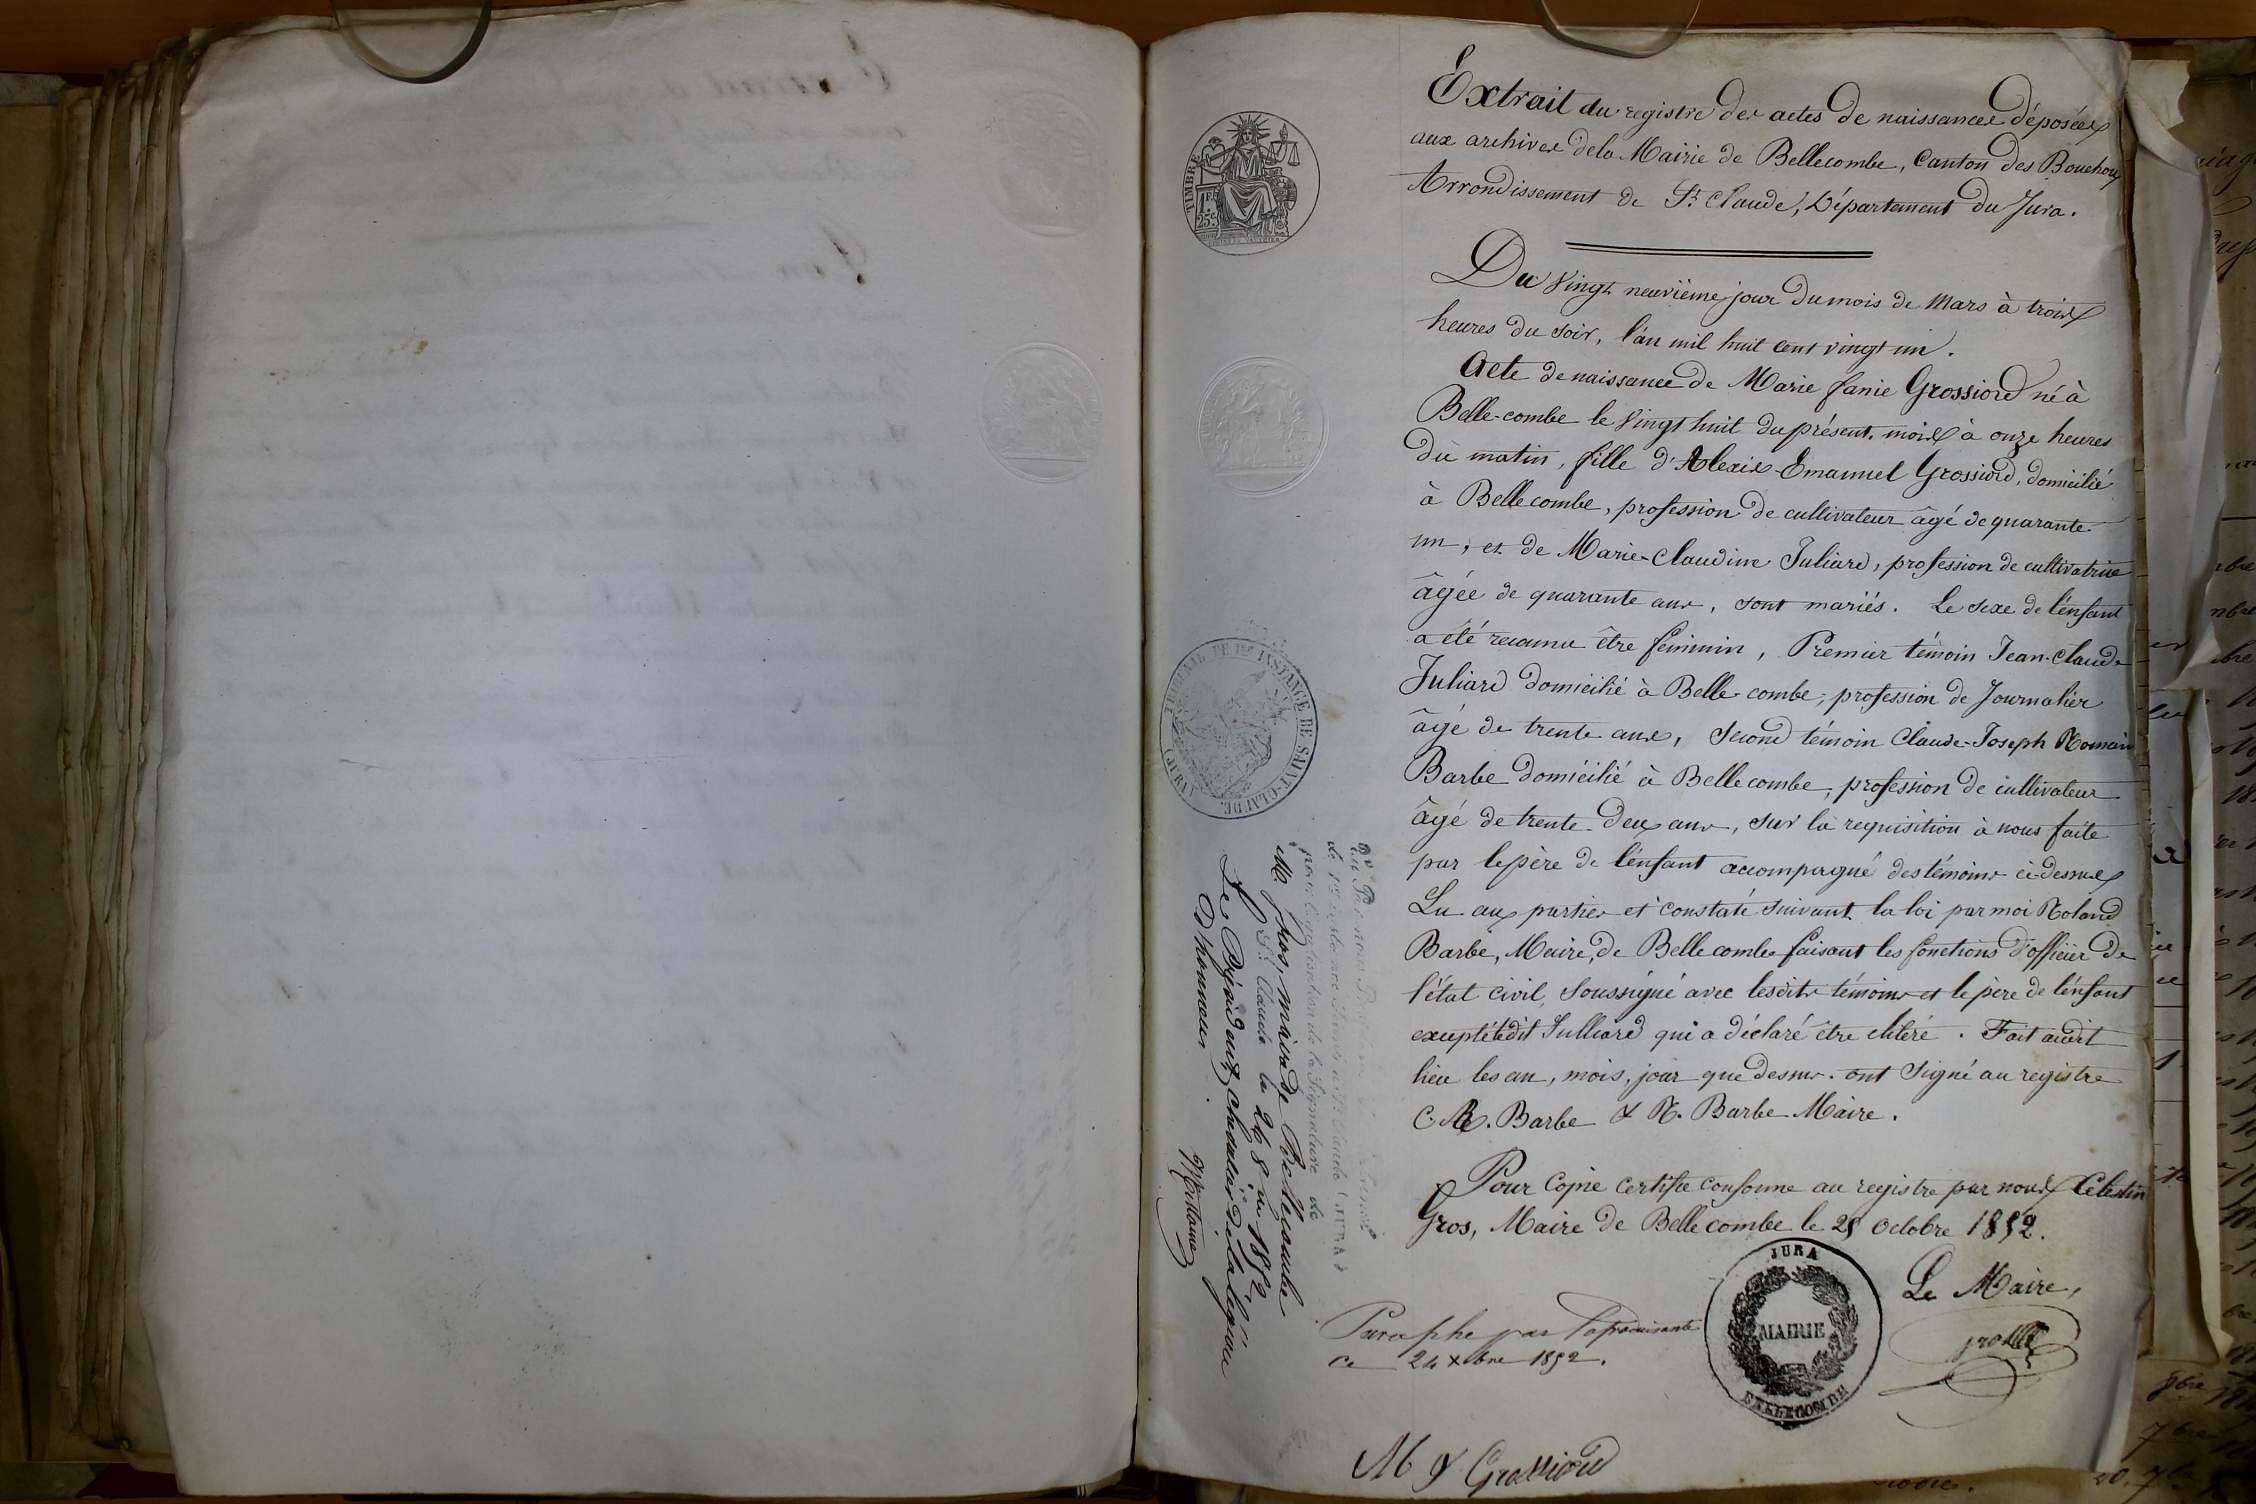 Extrait du registre des actes de naissances déposés
aux archives de la Mairie de Bellecombe, Canton des Bouchoux
Arrondissement de St Claude, Département du Jura.
Du vingt neuvième jour du mois de Mars à trois
heures du soir, l'an mil huit cent vingt un.
Acte de naissance de Marie fanie Grossiord né à
Belle-combe le vingt huit du présent mois à onze heures
du matin, fille d'Alexis-Emanuel Grossiord, domicilié
à Bellecombe, profession de cultivateur âgé de quarante
un, et de Marie-Claudine Juliard, profession de cultivatrice
âgée de quarante ans, sont mariés. Le sexe de l'enfant
a été reconnu être féminin, Premier témoin Jean-Claude
Juliard domicilié à Belle-combe, profession de Journalier
âgé de trente ans, Second témoin Claude-Joseph Romain
Barbe domicilié à Bellecombe, profession de cultivateur
âgé de trente-deux ans, sur la requisition à nous faite
par le père de l'enfant accompagné des témoins ci-dessus
Lu aux parties et constaté suivant la loi par moi Roland
Barbe, Maire, de Bellecombe faisant les fonctions d'officier de
l'état civil, Soussigné avec lesdits témoins et le père de l'enfant
excepté ledit Julliard qui a déclaré être iliteré. Fait audit
lieu les an, mois, jour que dessus. ont signé au registre
C. R. Barbe & R. Barbe Maire.
Pour Copie certifié conforme au registre par nous Célestin
Gros, Maire de Bellecombe le 25 octobre 1852.
Le Maire,
Paraphe par la produisante
ce 24 xbre 1852.
M f Grossiord
TIMBRE
1F
25c
TRIBUNAL DE 1re INSTANCE DE SAINT-CLAUDE
(JURA)
JURA
MAIRIE
BELLECOMBE
pour légalisation de la Signature de
M gros, maire de Bellecombe
St Claude le 26 8bre 1852
Le Président, chevalier de la légion
d'honneur.